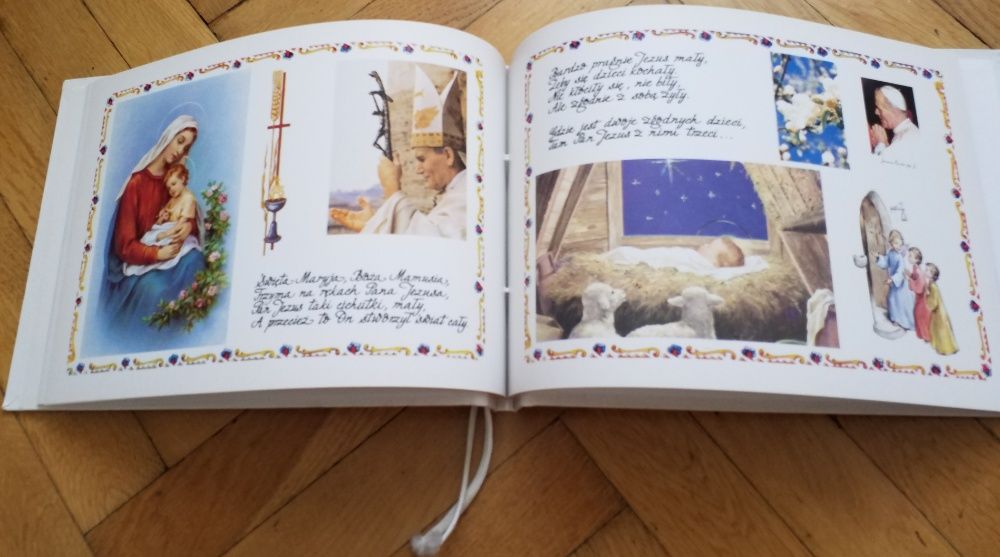 Święta Maryja, Boża Mamusia,
Trzyma na rękach Pana Jezusa,
Pan Jezus taki cichutki, mały,
A przecież to On stworzył świat cały
Bardzo pragnie Jezus mały,
Żeby się dzieci kochały.
Nie kłóciły się, nie biły,
Ale zgodnie z sobą żyły.
Gdzie jest dwoje zgodnych dzieci,
Tam Pan Jezus z nimi trzeci...